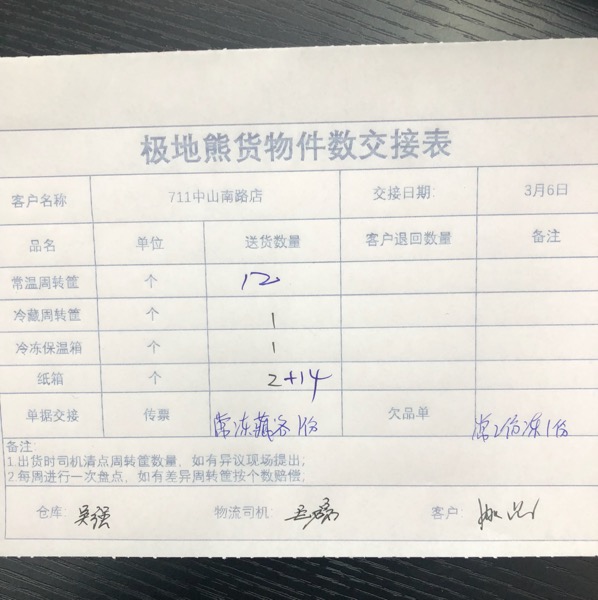 极地熊货物件数交接表
客户名称 711中山南路店 交接日期: 3月6日
品名 单位 送货数量 客户退回数量 备注
常温周转筐 个 12
冷藏周转筐 个 1
冷冻保温箱 个 1
纸箱 个 2+14
单据交接 传票 常冻藏各1份 欠品单 常2份冻1份
备注:
1.出货时司机清点周转筐数量, 如有异议现场提出;
2.每周进行一次盘点, 如有差异周转筐按个数赔偿;
仓库: 吴强 物流司机: 客户: